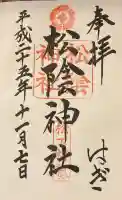 奉拝
はぎ
松陰神社
平成二十五年十一月七日